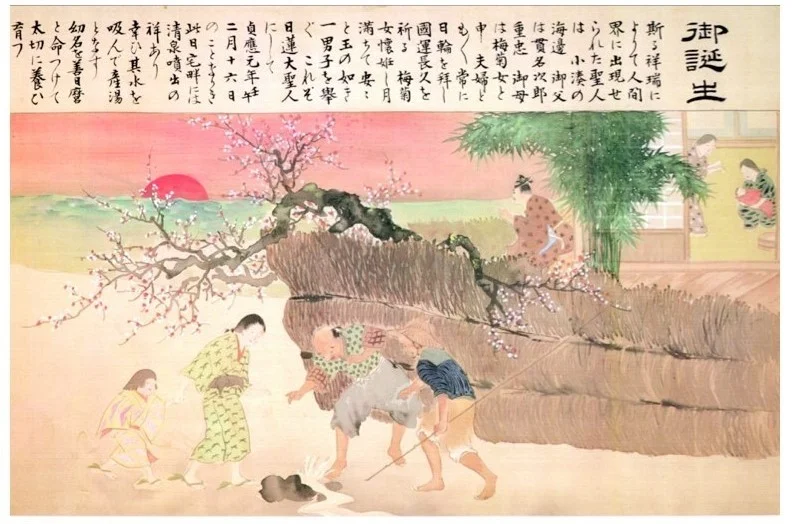 御誕生
斯る祥瑞に
よりて人間
界に出現せ
られた聖人
は 小湊の
海邊 御父
は貫名次郎
重忠 御母
は梅菊女と
申 夫婦と
もに常に
日輪を拜し
國運長久を
祈る 梅菊
女懷姙し月
満ちて安〻
と玉の如き
一男子を舉
ぐ これぞ
日蓮大聖人
にして
貞應元年壬午
二月十六日
のことなりき
此日宅畔には
清泉噴出の
祥あり
幸ひ其水を
吸んで産湯
となす
幼名を善日麿
と命つけて
太切に養ひ
育つ